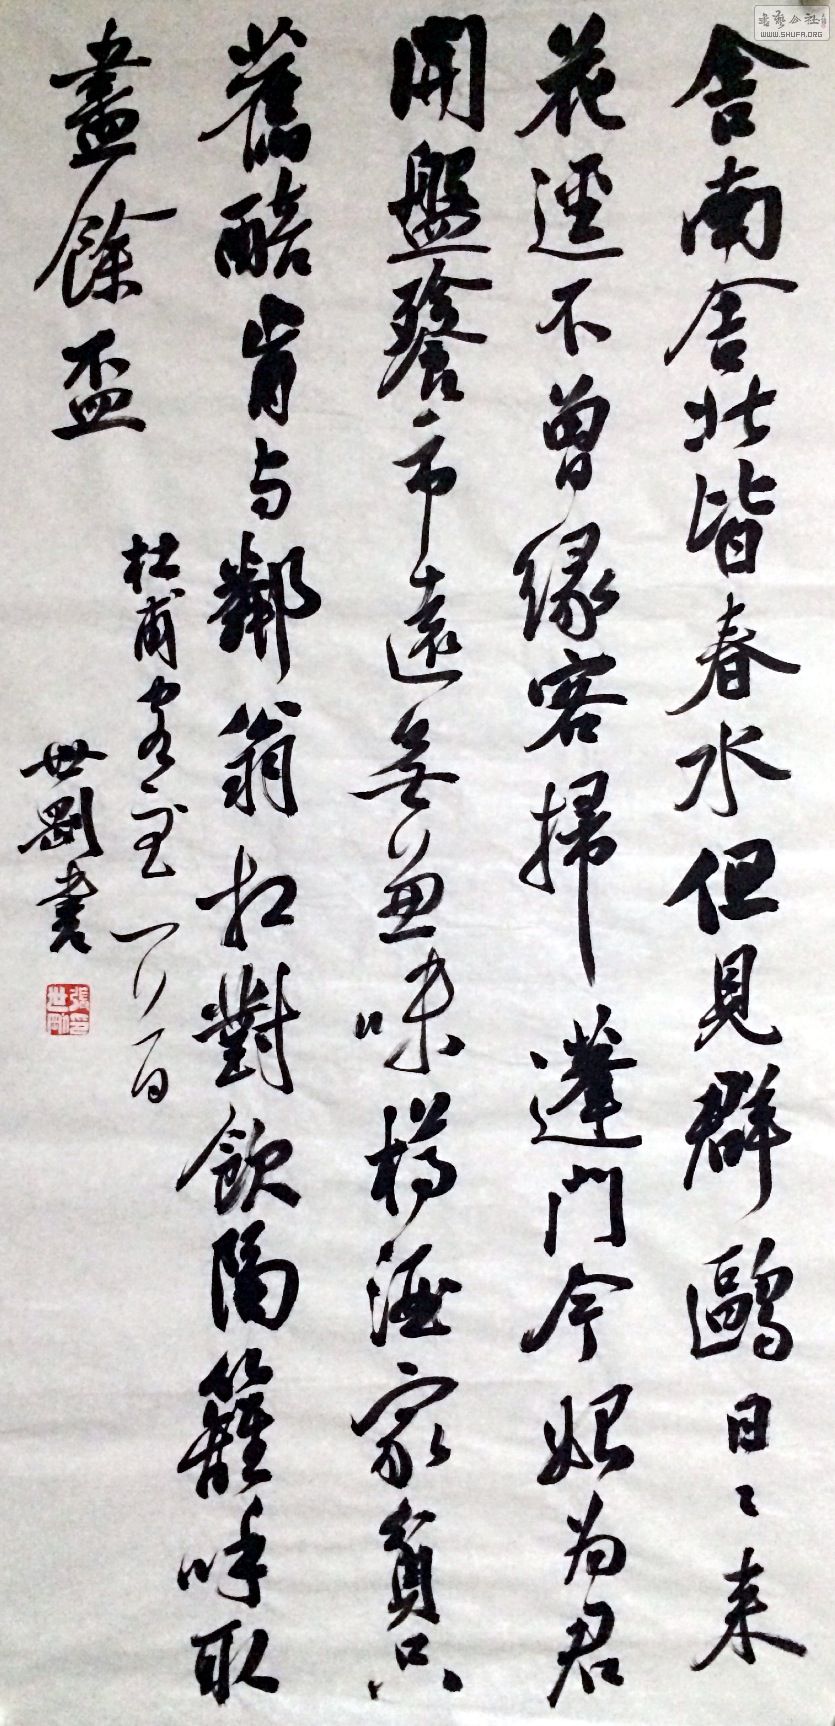 舍南舍北皆春水但見群鷗日々来
花逕不曾緣客掃蓬門今始为君
開盤飱市遠無兼味樽酒家貧只
舊醅肯与鄰翁相對飲隔籬呼取
盡餘盃
杜甫客至一首
世剛書
張世剛印
书艺公社
WWW.SHUFA.ORG